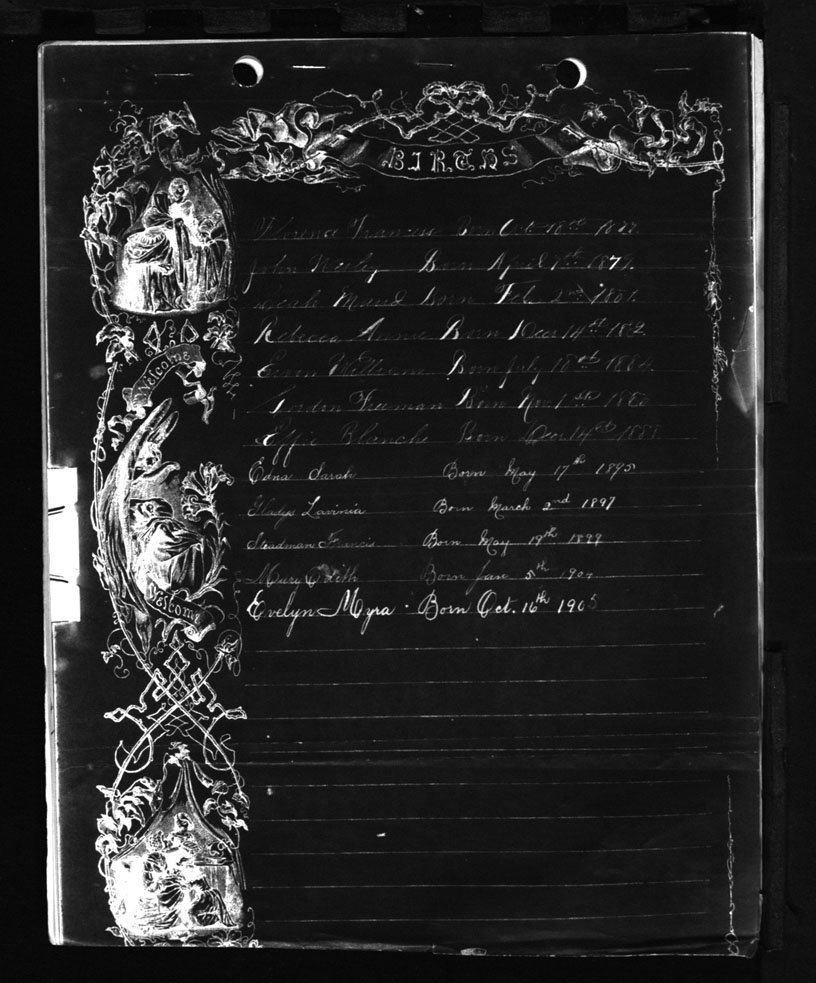 BIRTHS
Florence Francess Born Oct 18th
John Born April 7th 1879.
Maud Born Feb 2nd 1881.
Rebecca Annie Born Decr 14th 182
William Born July 18th 1884.
Gordon Freeman Born Nov 1st
Effie Blanche Born Decr 14th 1888
Edna Sarah Born May 17th 1895
Gladys Lavinia Born March 2nd 1897
Steadman Francis Born May 19th 1899
Mary Edith Born Jan 5th
Evelyn Myra Born Oct. 16th 1905
Welcome
Welcome